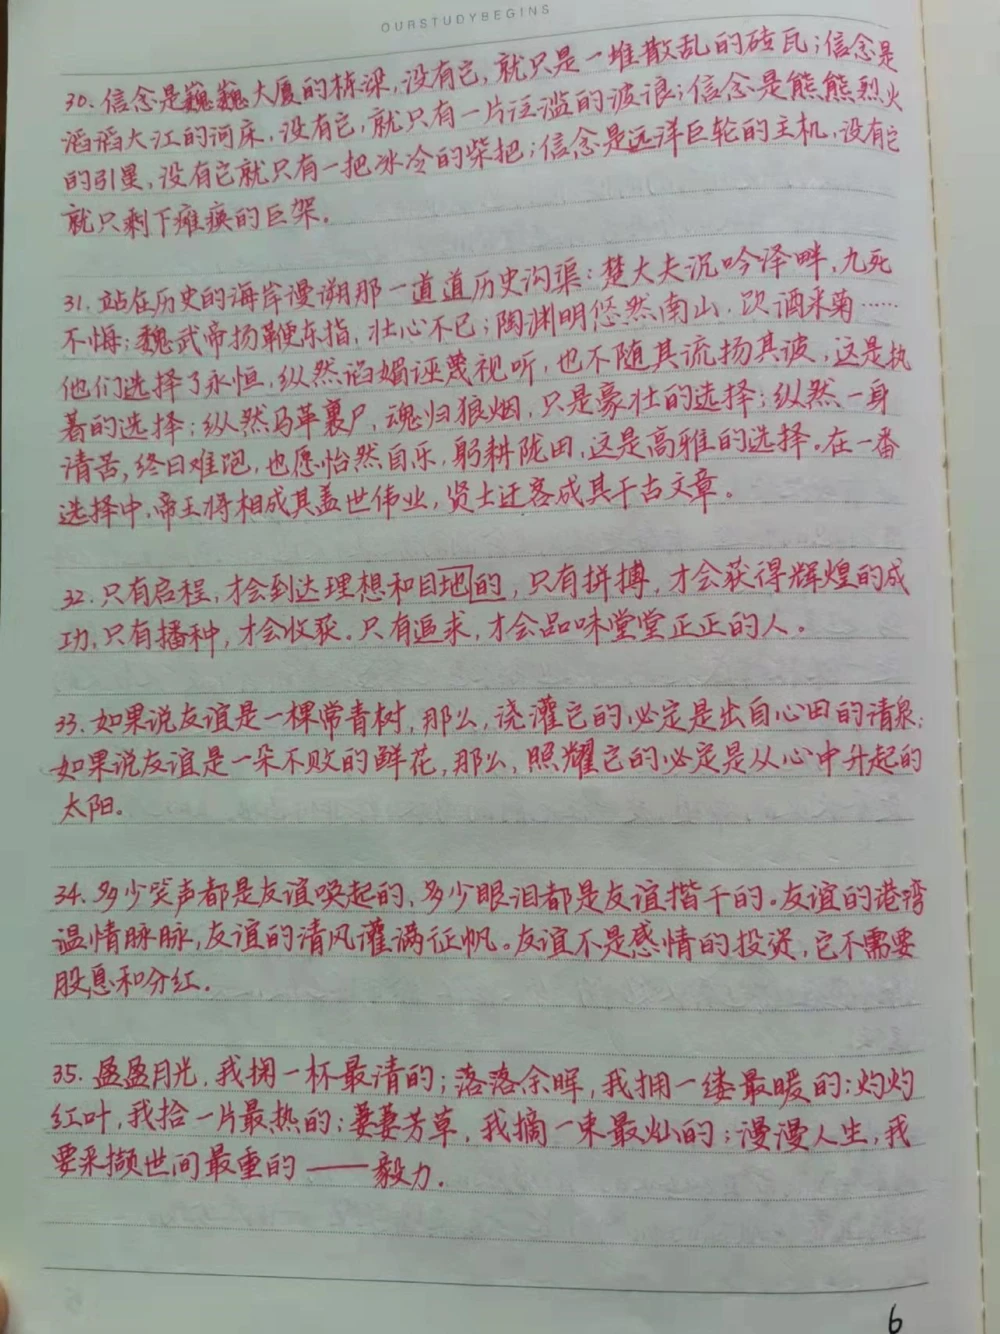 OURSTUDYBEGINS
30. 信念是巍巍大厦的栋梁,没有它,就只是一堆散乱的砖瓦;信念是
滔滔大江的河床,没有它,就只有一片泛滥的波浪;信念是熊熊烈火
的引星,没有它就只有一把冰冷的柴把;信念是远洋巨轮的主机,没有它
就只剩下瘫痪的巨架.
31. 站在历史的海岸漫溯那一道道历史沟渠:楚大夫沉吟泽畔,九死
不悔;魏武帝扬鞭东指,壮心不已;陶渊明悠然南山,饮酒采菊……
他们选择了永恒,纵然谄媚诬蔑视听,也不随其流扬其波,这是执
著的选择;纵然马革裹尸,魂归狼烟,只是豪壮的选择;纵然一身
清苦,终日难饱,也愿怡然自乐,躬耕陇田,这是高雅的选择。在一番
选择中,帝王将相成其盖世伟业,贤士迁客成其千古文章。
32. 只有启程,才会到达理想和目地的,只有拼搏,才会获得辉煌的成
功,只有播种,才会收获。只有追求,才会品味堂堂正正的人。
33. 如果说友谊是一棵常青树,那么,浇灌它的必定是出自心田的清泉;
如果说友谊是一朵不败的鲜花,那么,照耀它的必定是从心中升起的
太阳。
34. 多少笑声都是友谊唤起的,多少眼泪都是友谊揩干的。友谊的港湾
温情脉脉,友谊的清风灌满征帆。友谊不是感情的投资,它不需要
股息和分红.
35. 盈盈月光,我掬一杯最清的;落落余晖,我拥一缕最暖的;灼灼
红叶,我拾一片最热的;萋萋芳草,我摘一束最灿的;漫漫人生,我
要采撷世间最重的——毅力.
6